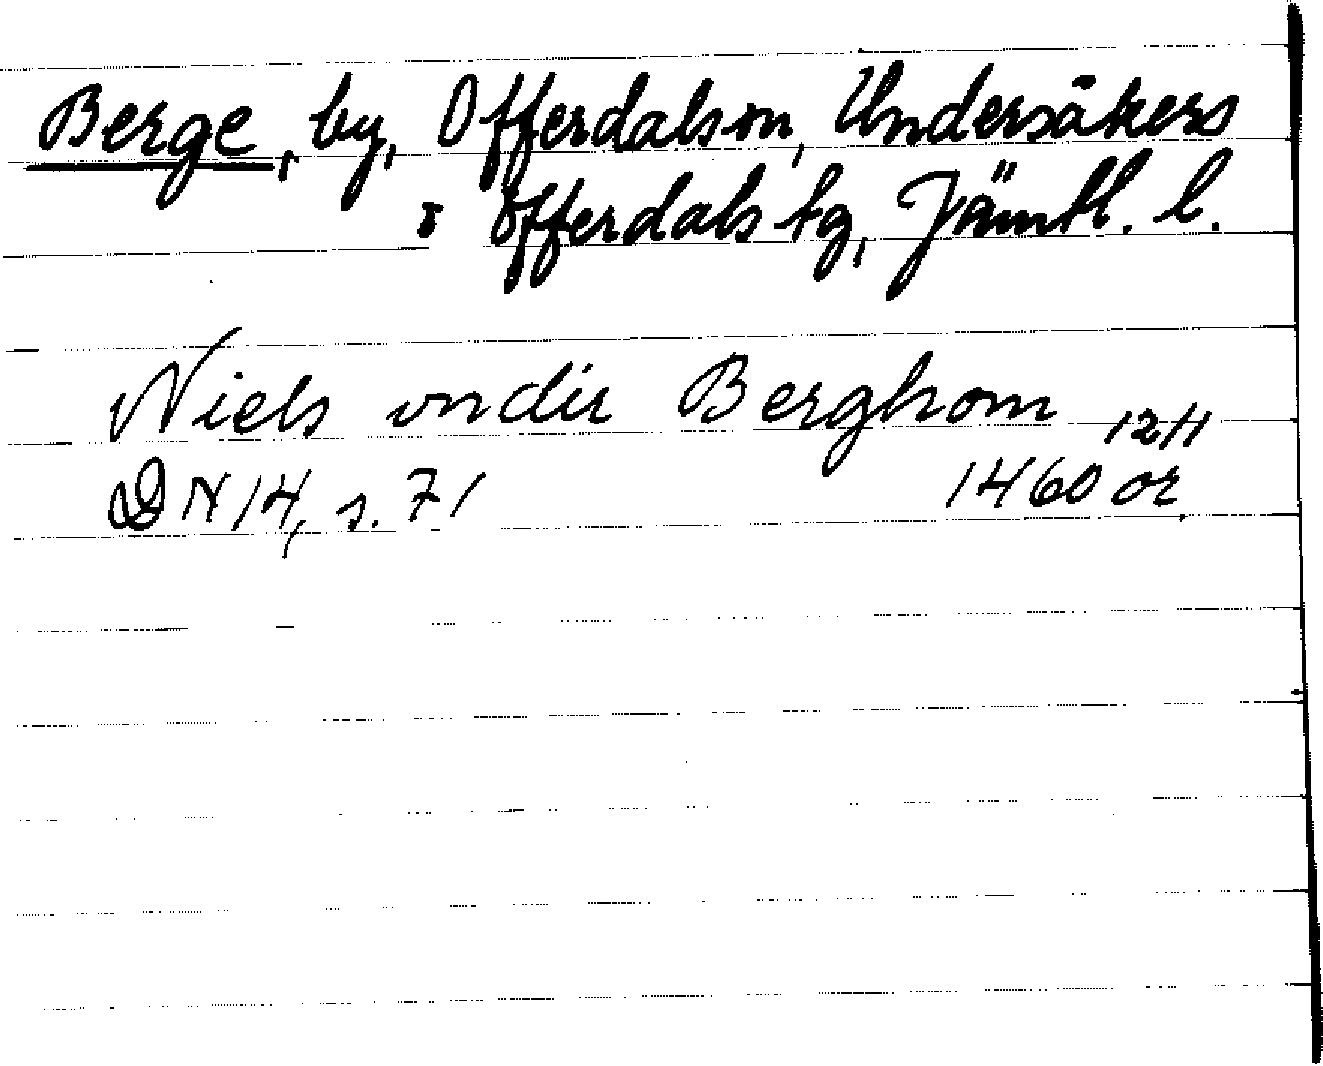 Berge, by, Offerdals sn, Undersåkers
o Offerdals tg, Jämtl. l.
Niels vndir Berghom 12/1
DN 14, s. 71 1460 or.